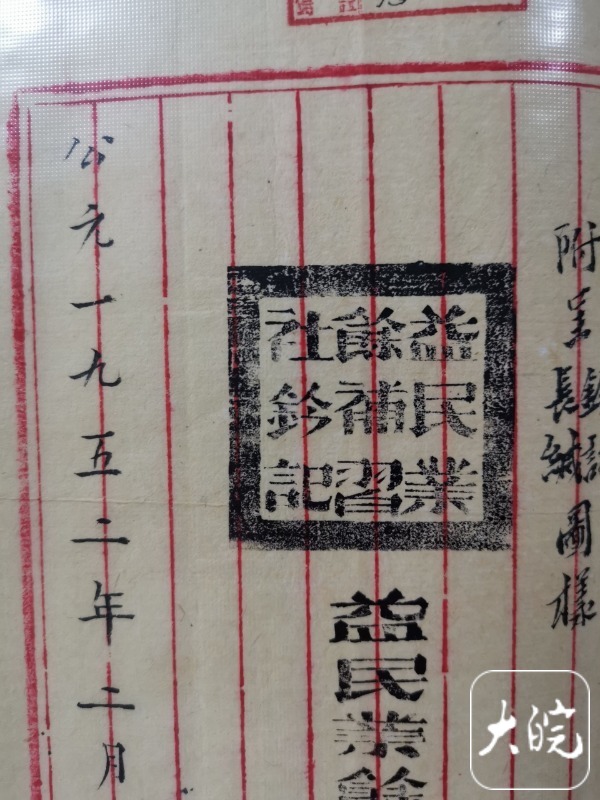 附呈圖樣
益民業
餘補習
社鈐記
益民業餘
公元一九五二年二月
大皖